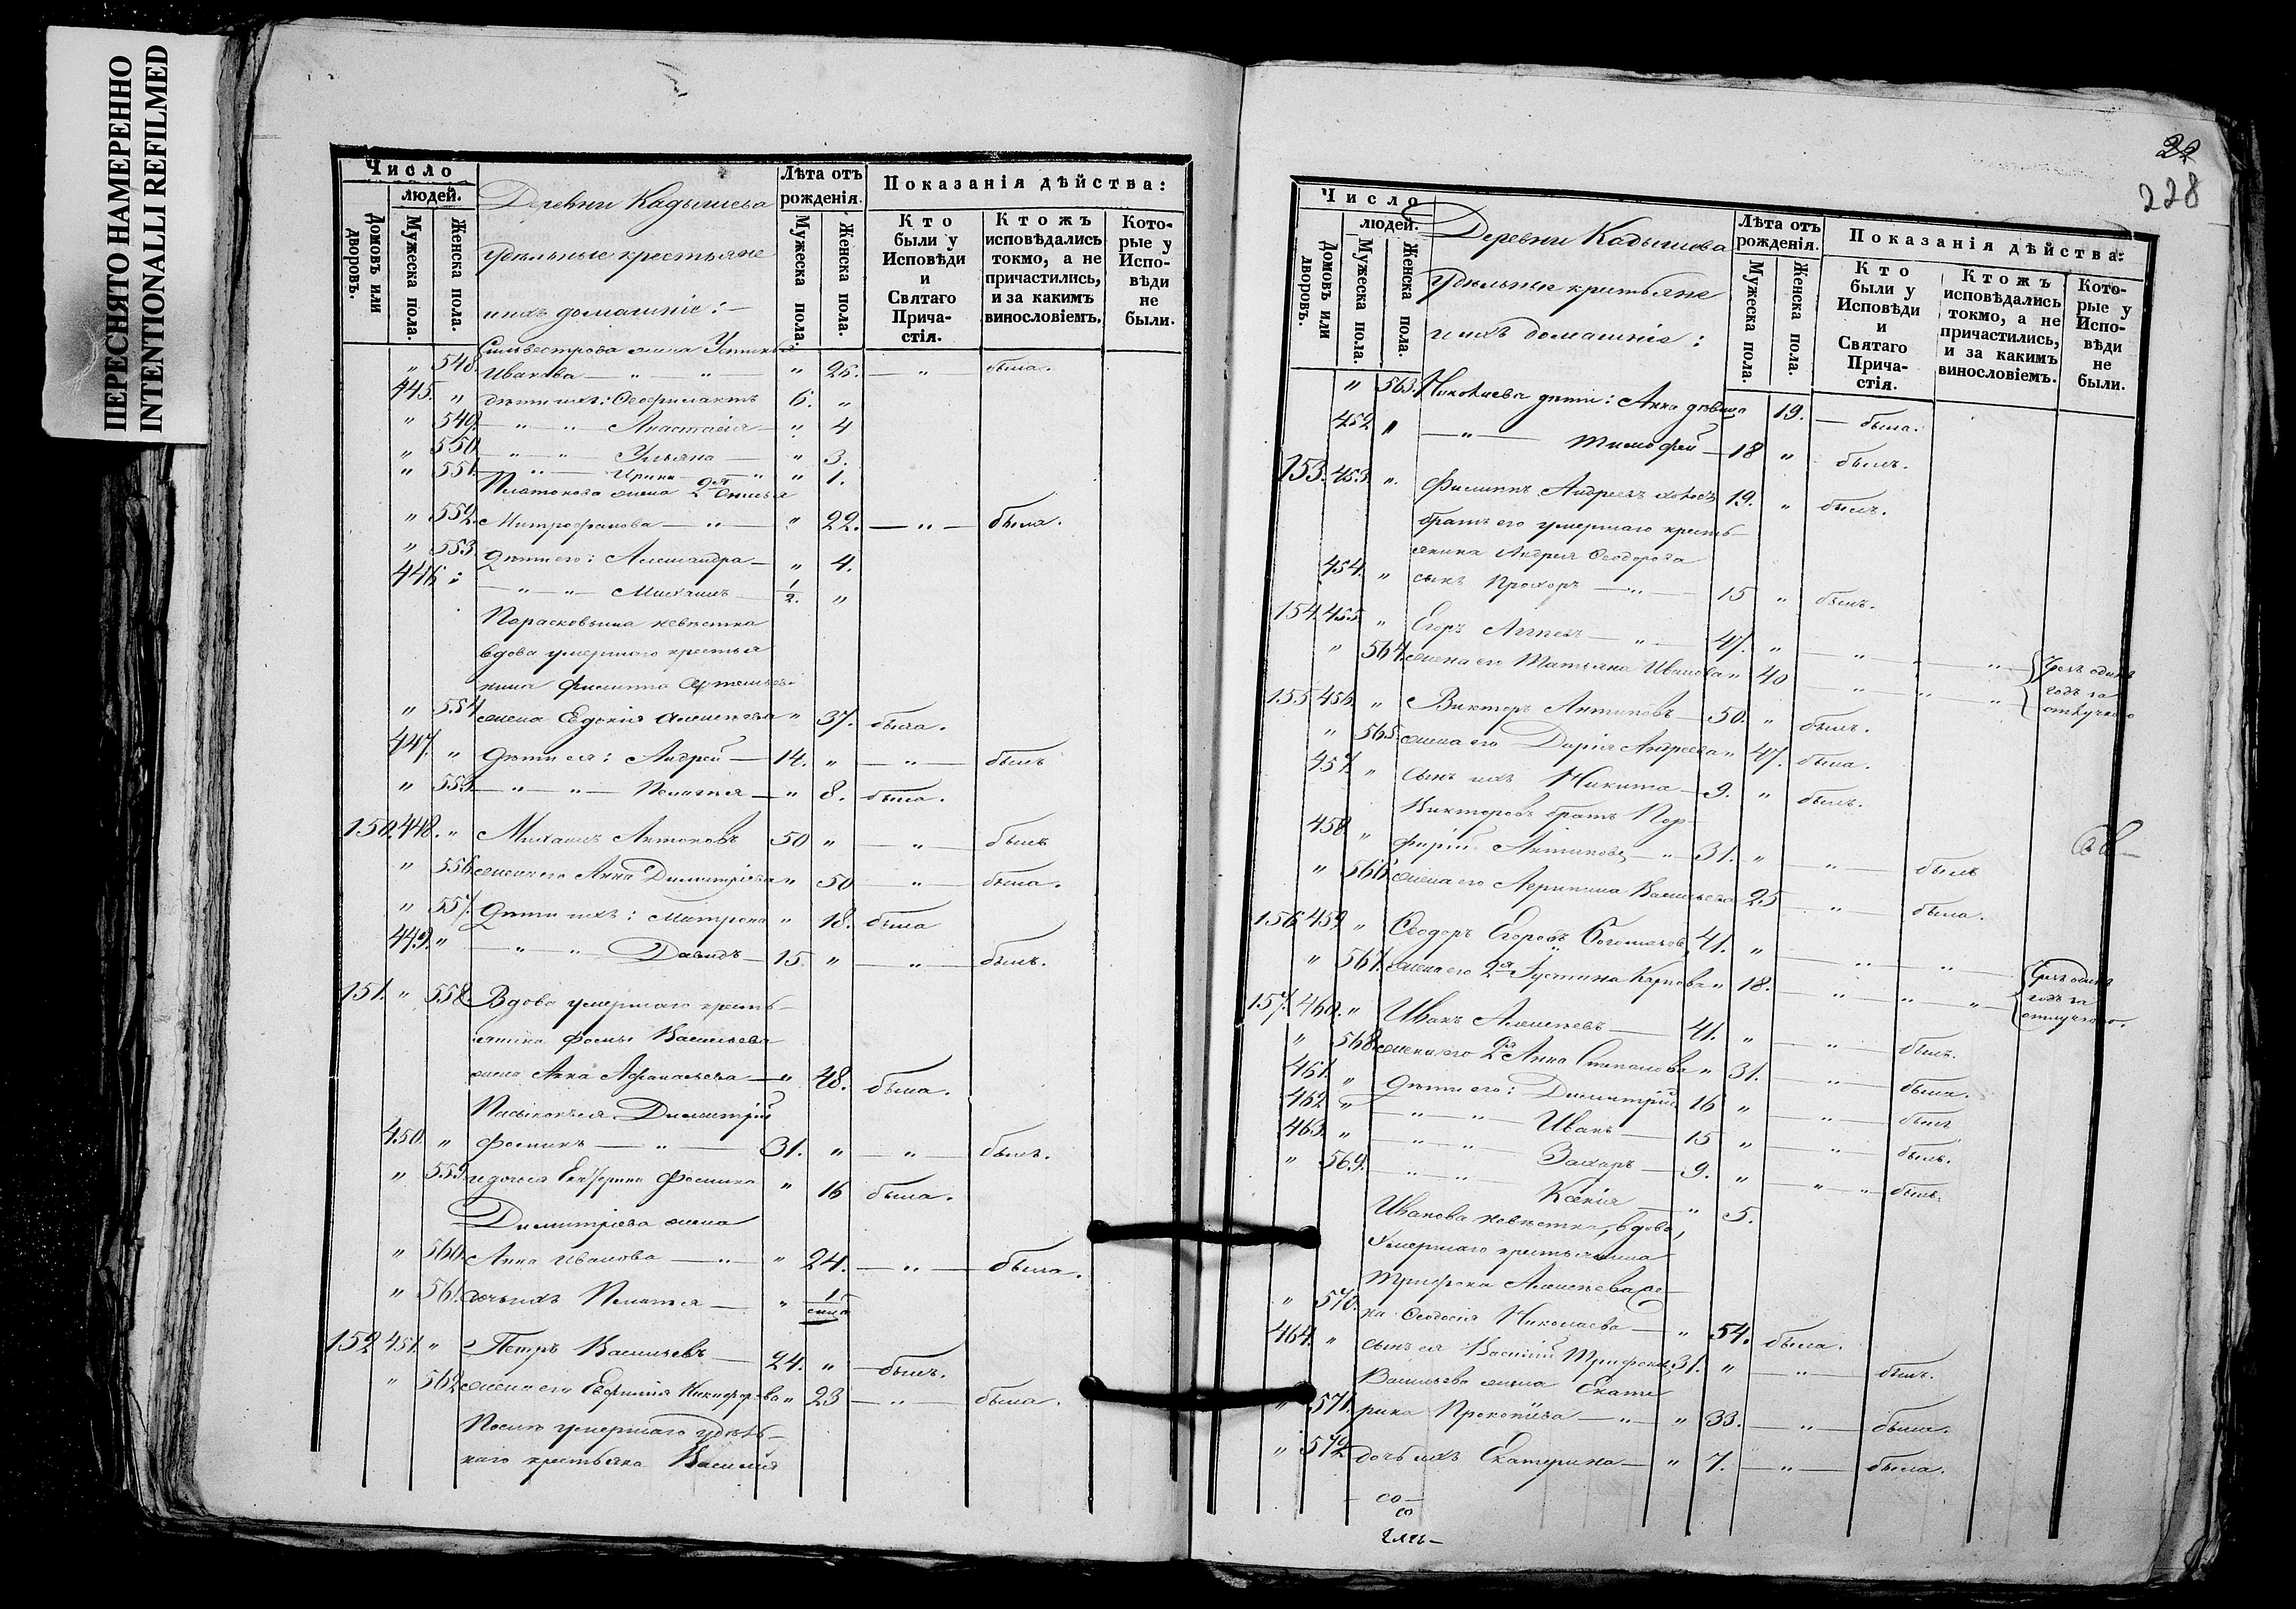 ПЕРЕСНЯТО НАМЕРЕННО
INTENTIONALLI REFILMED
Число
людей.
Домовъ или дворовъ.
Мужеска пола.
Женска пола.
Деревни Кадышева
Удѣльные крестьяне
и ихъ домашніе:
Лѣта отъ рожденія.
Мужеска пола.
Женска пола.
Показанія дѣйства:
Кто были у Исповѣди и Святаго Причастія.
Ктожъ исповѣдались токмо, а не причастились, и за какимъ винословіемъ.
Которые у Исповѣди не были.
Сильвестрова жена Устинья
" 548. Иванова — " — " — " 26. — " была.
445. " дѣти ихъ: Ѳеофилактъ 6. "
" 549. — " — " — Анастасія — " 4
" 550. — " — " — Ульяна — " 3.
" 551. — " — Ирина — " " 1.
Платонова жена 2я
" 552. Митрофанова — " — " 22. — " — была.
" 553 Дѣти его: Александра — " 4.
446. " — " — " Михаилъ — 1/2. "
невѣстка
вдова умершаго крестья
нина Филиппа
" 554 жена Евдокія Алексѣева " 37. была.
447. " Дѣти ея: Андрей — 14. " — " — былъ
" 555. — " — " — Пелагея — " 8. была.
150. 448. " Михаилъ Антоновъ 50 " — " — былъ
" 556 жена его Анна Димитріева " 50 — " — была.
" 557. Дѣти ихъ: Матрона " 18. была
449. " — " — " Давидъ — 15. " — " — былъ.
151. " 558 Вдова умершаго кресть-
янина Фомы Васильева
жена Анна Афанасьева — " 48. была.
Димитрій
450. " Фоминъ — " — 31. " — " — былъ.
" 559. и дочь ея Екатерина Фомина " 16 была.
Димитріева жена
" 560. Анна Иванова — " — " 24. — " — была.
" 561. дочь ихъ Пелагея — " 1/2
152 451. " Петръ Васильевъ — 24. " — былъ.
" 562 жена его Евфимія Никифорова " 23 — " — была.
После умершаго удѣль-
наго крестьяна Василія
22
228
Число
людей.
Домовъ или дворовъ.
Мужеска пола.
Женска пола.
Деревни Кадышева
Удѣльные крестьяне
и ихъ домашніе:
Лѣта отъ рожденія.
Мужеска пола.
Женска пола.
Показанія дѣйства:
Кто были у Исповѣди и Святаго Причастія.
Ктожъ исповѣдались токмо, а не причастились, и за какимъ винословіемъ.
Которые у Исповѣди не были.
" 563. Николаева дѣти: Анна дѣвица 19. — была.
452 " — " — Тимофей — 18 " былъ.
153. 453. " Филиппъ Андреевъ холостъ 19. " былъ.
братъ его умершаго кресть-
янина Андрея Ѳеодорова
454. " сынъ Прохоръ — " — 15 " былъ.
154 455. " Егоръ — " — 47. " — " — " —
" 564. жена его Татьяна Иванова " 40 — " — " —
одинъ
годъ за
отлучкою
155 456. " Викторъ Антиповъ — 50. " былъ.
" 565. жена его Дарія Андреева " 47. была.
457. " сынъ ихъ Никита — 9. " былъ.
Викторовъ братъ Пор-
458 " фирій Антиповъ — " — 31. " — " — былъ
" 566. жена его Агрипина Васильева 25 — " — была.
156 459. " Ѳеодоръ Егоровъ 41. " — " — " —
" 567. жена его 2я Іустина Карпова " 18. — " — " — "
одинъ
годъ за
отлучкою.
157. 460. " Иванъ Алексѣевъ — 41. " — " — былъ.
" 568. жена его 2я Анна Степанова " 31. — " — была.
461. " Дѣти его: Димитрій 16 " — " — былъ
462. " — " — " Иванъ — 15 " — " — былъ.
463. " — " — " Захаръ — 9. " — " — " былъ.
" 569. — " — " Ксенія — " 5.
Иванова невѣстка, вдова,
умершаго крестьянина
Трифона Алексѣева же-
" 570. на Ѳеодосія Николаева — " 54. была.
464. " сынъ ея Василій Трифоновъ 31. " — " — былъ.
Васильева жена Екате
" 571. рина Прокопіева — " — " 33. — " — была.
" 572 дочь ихъ Екатерина — " 7. — " — была.